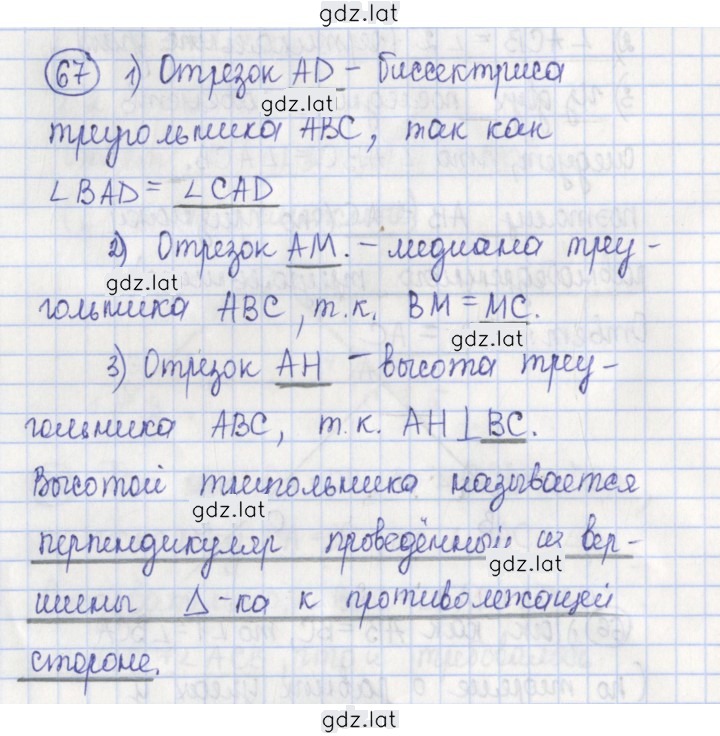 gdz.lat
67 1) Отрезок AD – биссектриса
gdz.lat
треугольника ABC, так как
∠BAD = ∠CAD
2) Отрезок AM. – медиана треу-
gdz.lat
гольника ABC, т.к. BM = MC.
gdz.lat
3) Отрезок AH – высота треу-
гольника ABC, т.к. AH ⊥ BC.
Высотой треугольника называется
gdz.lat
перпендикуляр проведённый из вер-
gdz.lat
шины Δ-ка к противолежащей
стороне.
gdz.lat